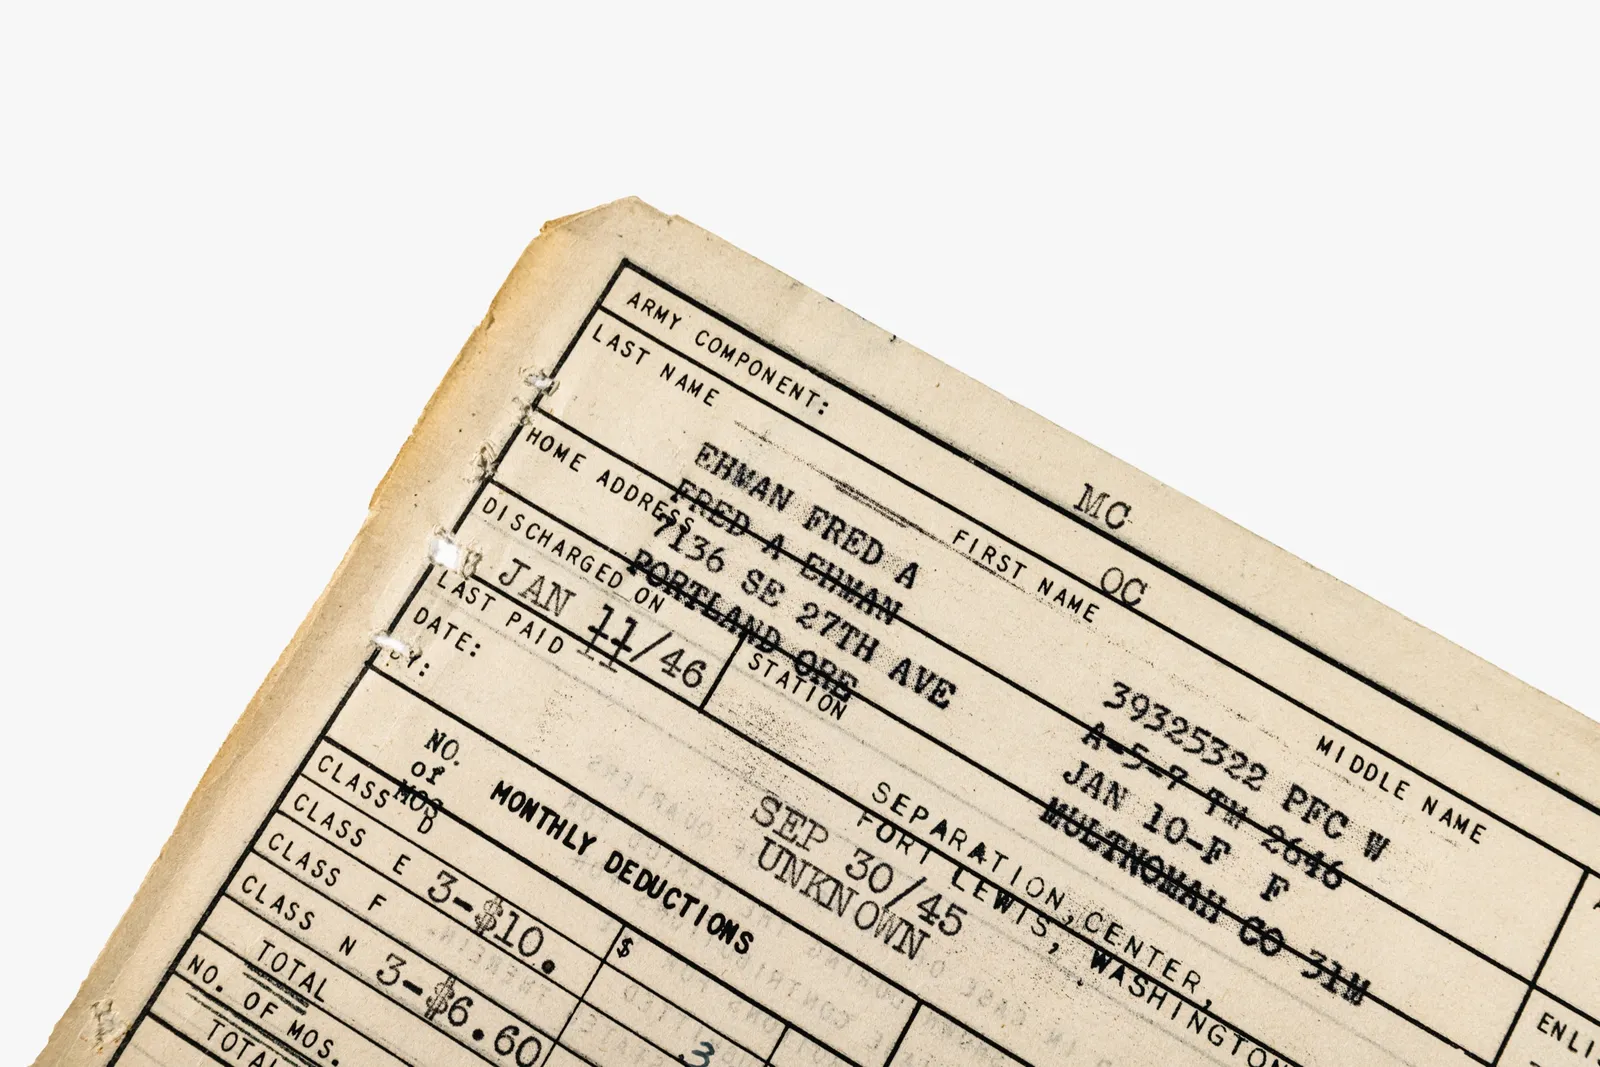 ARMY COMPONENT: MC
OC
LAST NAME FIRST NAME MIDDLE NAME
EHMAN FRED A 39325322 PFC W
FRED A EHMAN A-5-7 TM 2646
HOME ADDRESS
7136 SE 27TH AVE JAN 10-F F
PORTLAND ORE MULTNOMAH CO 31M
DISCHARGED ON
JAN 11/46
STATION
SEPARATION CENTER,
FORT LEWIS, WASHINGTON
LAST PAID
DATE: SEP 30/45
BY: UNKNOWN
NO.
of
MOS
MONTHLY DEDUCTIONS
CLASS D $
CLASS E 3-$10.
CLASS F
CLASS N 3-$6.60
TOTAL
NO. OF MOS.
TOTAL
ENLI